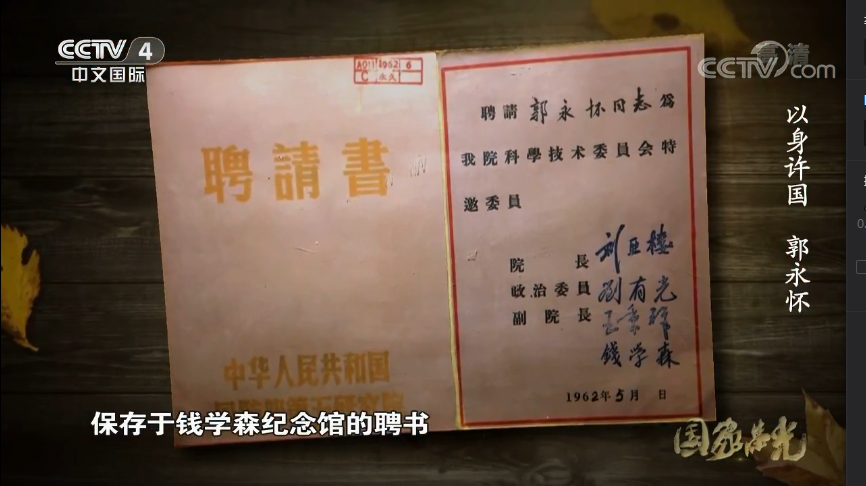 CCTV 4
中文国际
高清
CCTV.com
以身许国 郭永怀
A011 1962 6
C 永久
聘請書
中华人民共和国
国防部第五研究院
聘請 郭永怀同志 為
我院科學技术委員会特
邀委員
院長 刘亚楼
政治委員 劉有光
副院長 王秉璋
钱学森
1962年5月 日
保存于钱学森纪念馆的聘书
国家荣光